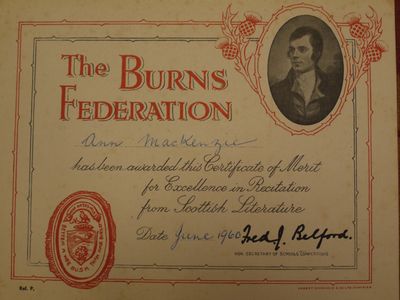 The BURNS
FEDERATION
Ann MacKenzie
has been awarded this Certificate of Merit
for Excellence in Recitation
from Scottish Literature
Date June 1960 Fred J. Belford.
HON. SECRETARY OF SCHOOLS' COMPETITIONS
Ref. P.